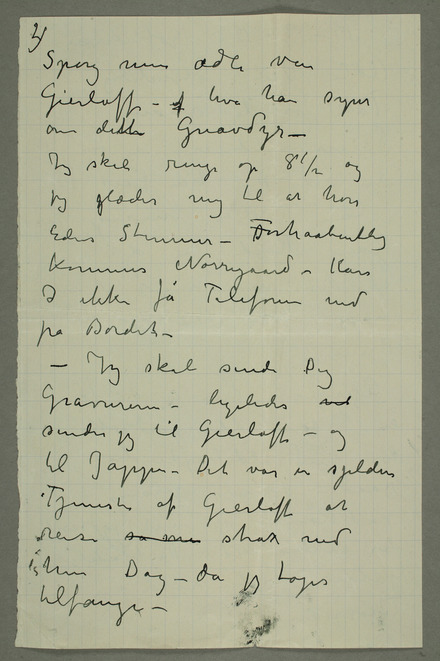 2)
Spørg min ædle ven
Gierløff – hva han synes
om dette Gnavdyr –
Jeg skal ringe op 8 1/2 og
jeg glæder mig til at høre
Eders Stemmer – Forhaabentlig
kommer Nørregaard – Kan
I ikke få Telefonen ned
på Bordet –
– Jeg skal sende Dig
Gravuren – ligeledes
sender jeg til Gierløff – og
til Jappe – Det var en sjelden
Tjeneste af Gierløff at
reise strax ned
hin Dag – da jeg toges
tilfange –